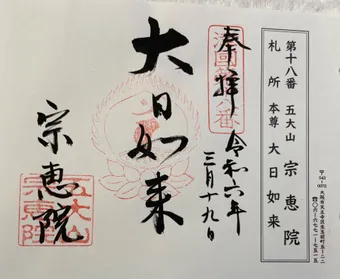 第十八番 五大山 宗恵院
札所本尊 大日如来
奉拝 令和六年
三月十九日
大日如来
宗恵院